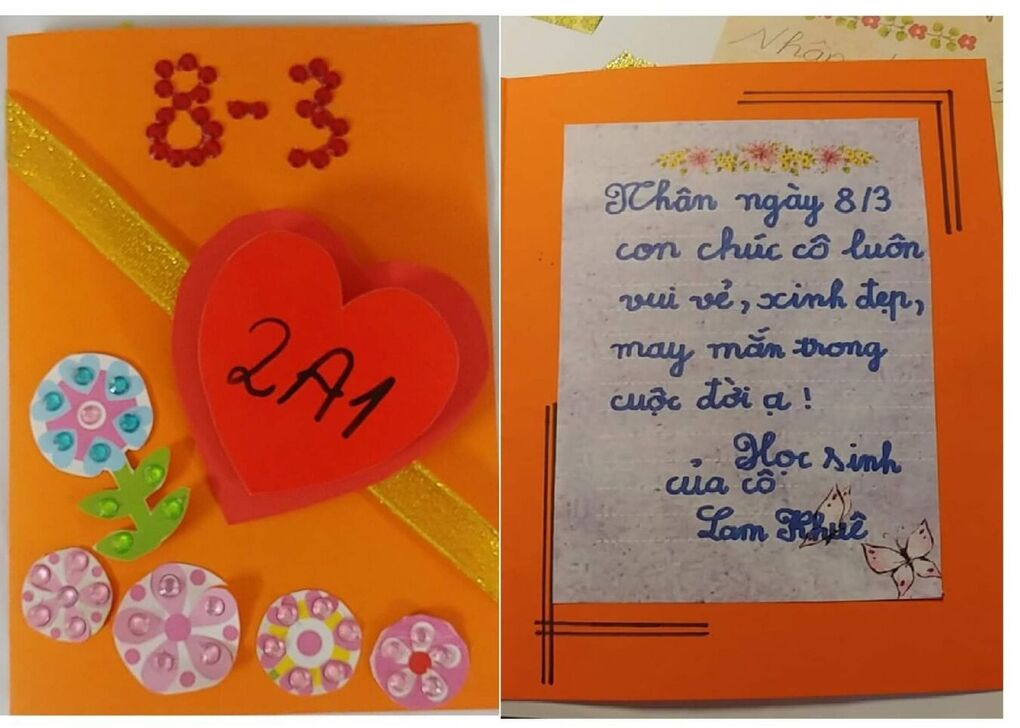 8-3
2A1
Nhân
Nhân ngày 8/3
con chúc cô luôn
vui vẻ, xinh đẹp,
may mắn trong
cuộc đời ạ!
Học sinh
của cô
Lam Khuê